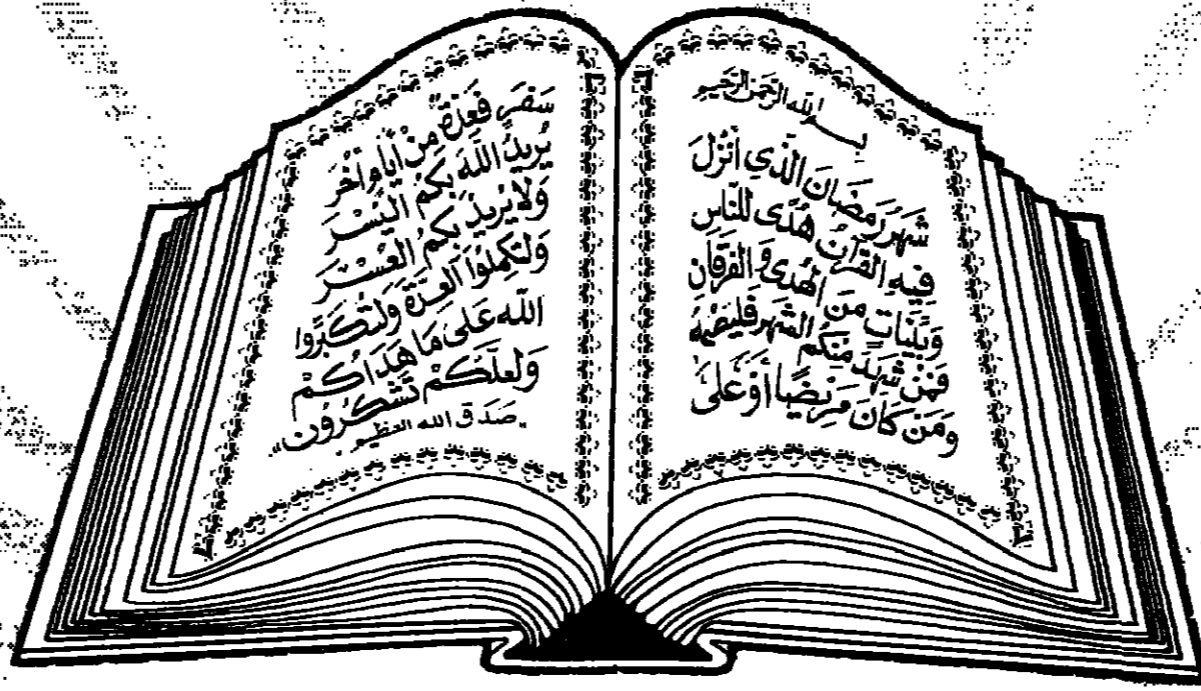 بسم الله الرحمن الرحيم
شَهْرُ رَمَضَانَ الَّذِي أُنْزِلَ
فِيهِ الْقُرْآنُ هُدًى لِلنَّاسِ
وَبَيِّنَاتٍ مِنَ الْهُدَى وَالْفُرْقَانِ
فَمَنْ شَهِدَ مِنْكُمُ الشَّهْرَ فَلْيَصُمْهُ
وَمَنْ كَانَ مَرِيضًا أَوْ عَلَى
سَفَرٍ فَعِدَّةٌ مِنْ أَيَّامٍ أُخَرَ
يُرِيدُ اللَّهُ بِكُمُ الْيُسْرَ
وَلَا يُرِيدُ بِكُمُ الْعُسْرَ
وَلِتُكْمِلُوا الْعِدَّةَ وَلِتُكَبِّرُوا
اللَّهَ عَلَى مَا هَدَاكُمْ
وَلَعَلَّكُمْ تَشْكُرُونَ
"صدق الله العظيم"